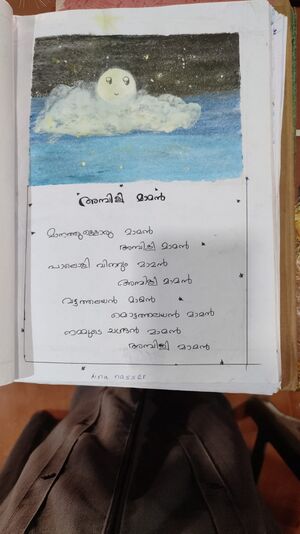 അമ്പിളി മാമൻ
മാനത്തുള്ളൊരു മാമൻ
അമ്പിളി മാമൻ
പാലൊളി വിതറും മാമൻ
അമ്പിളി മാമൻ
വട്ടത്തലയൻ മാമൻ
മൊട്ടത്തലയൻ മാമൻ
നമ്മുടെ ചന്തൻ മാമൻ
അമ്പിളി മാമൻ
nasser